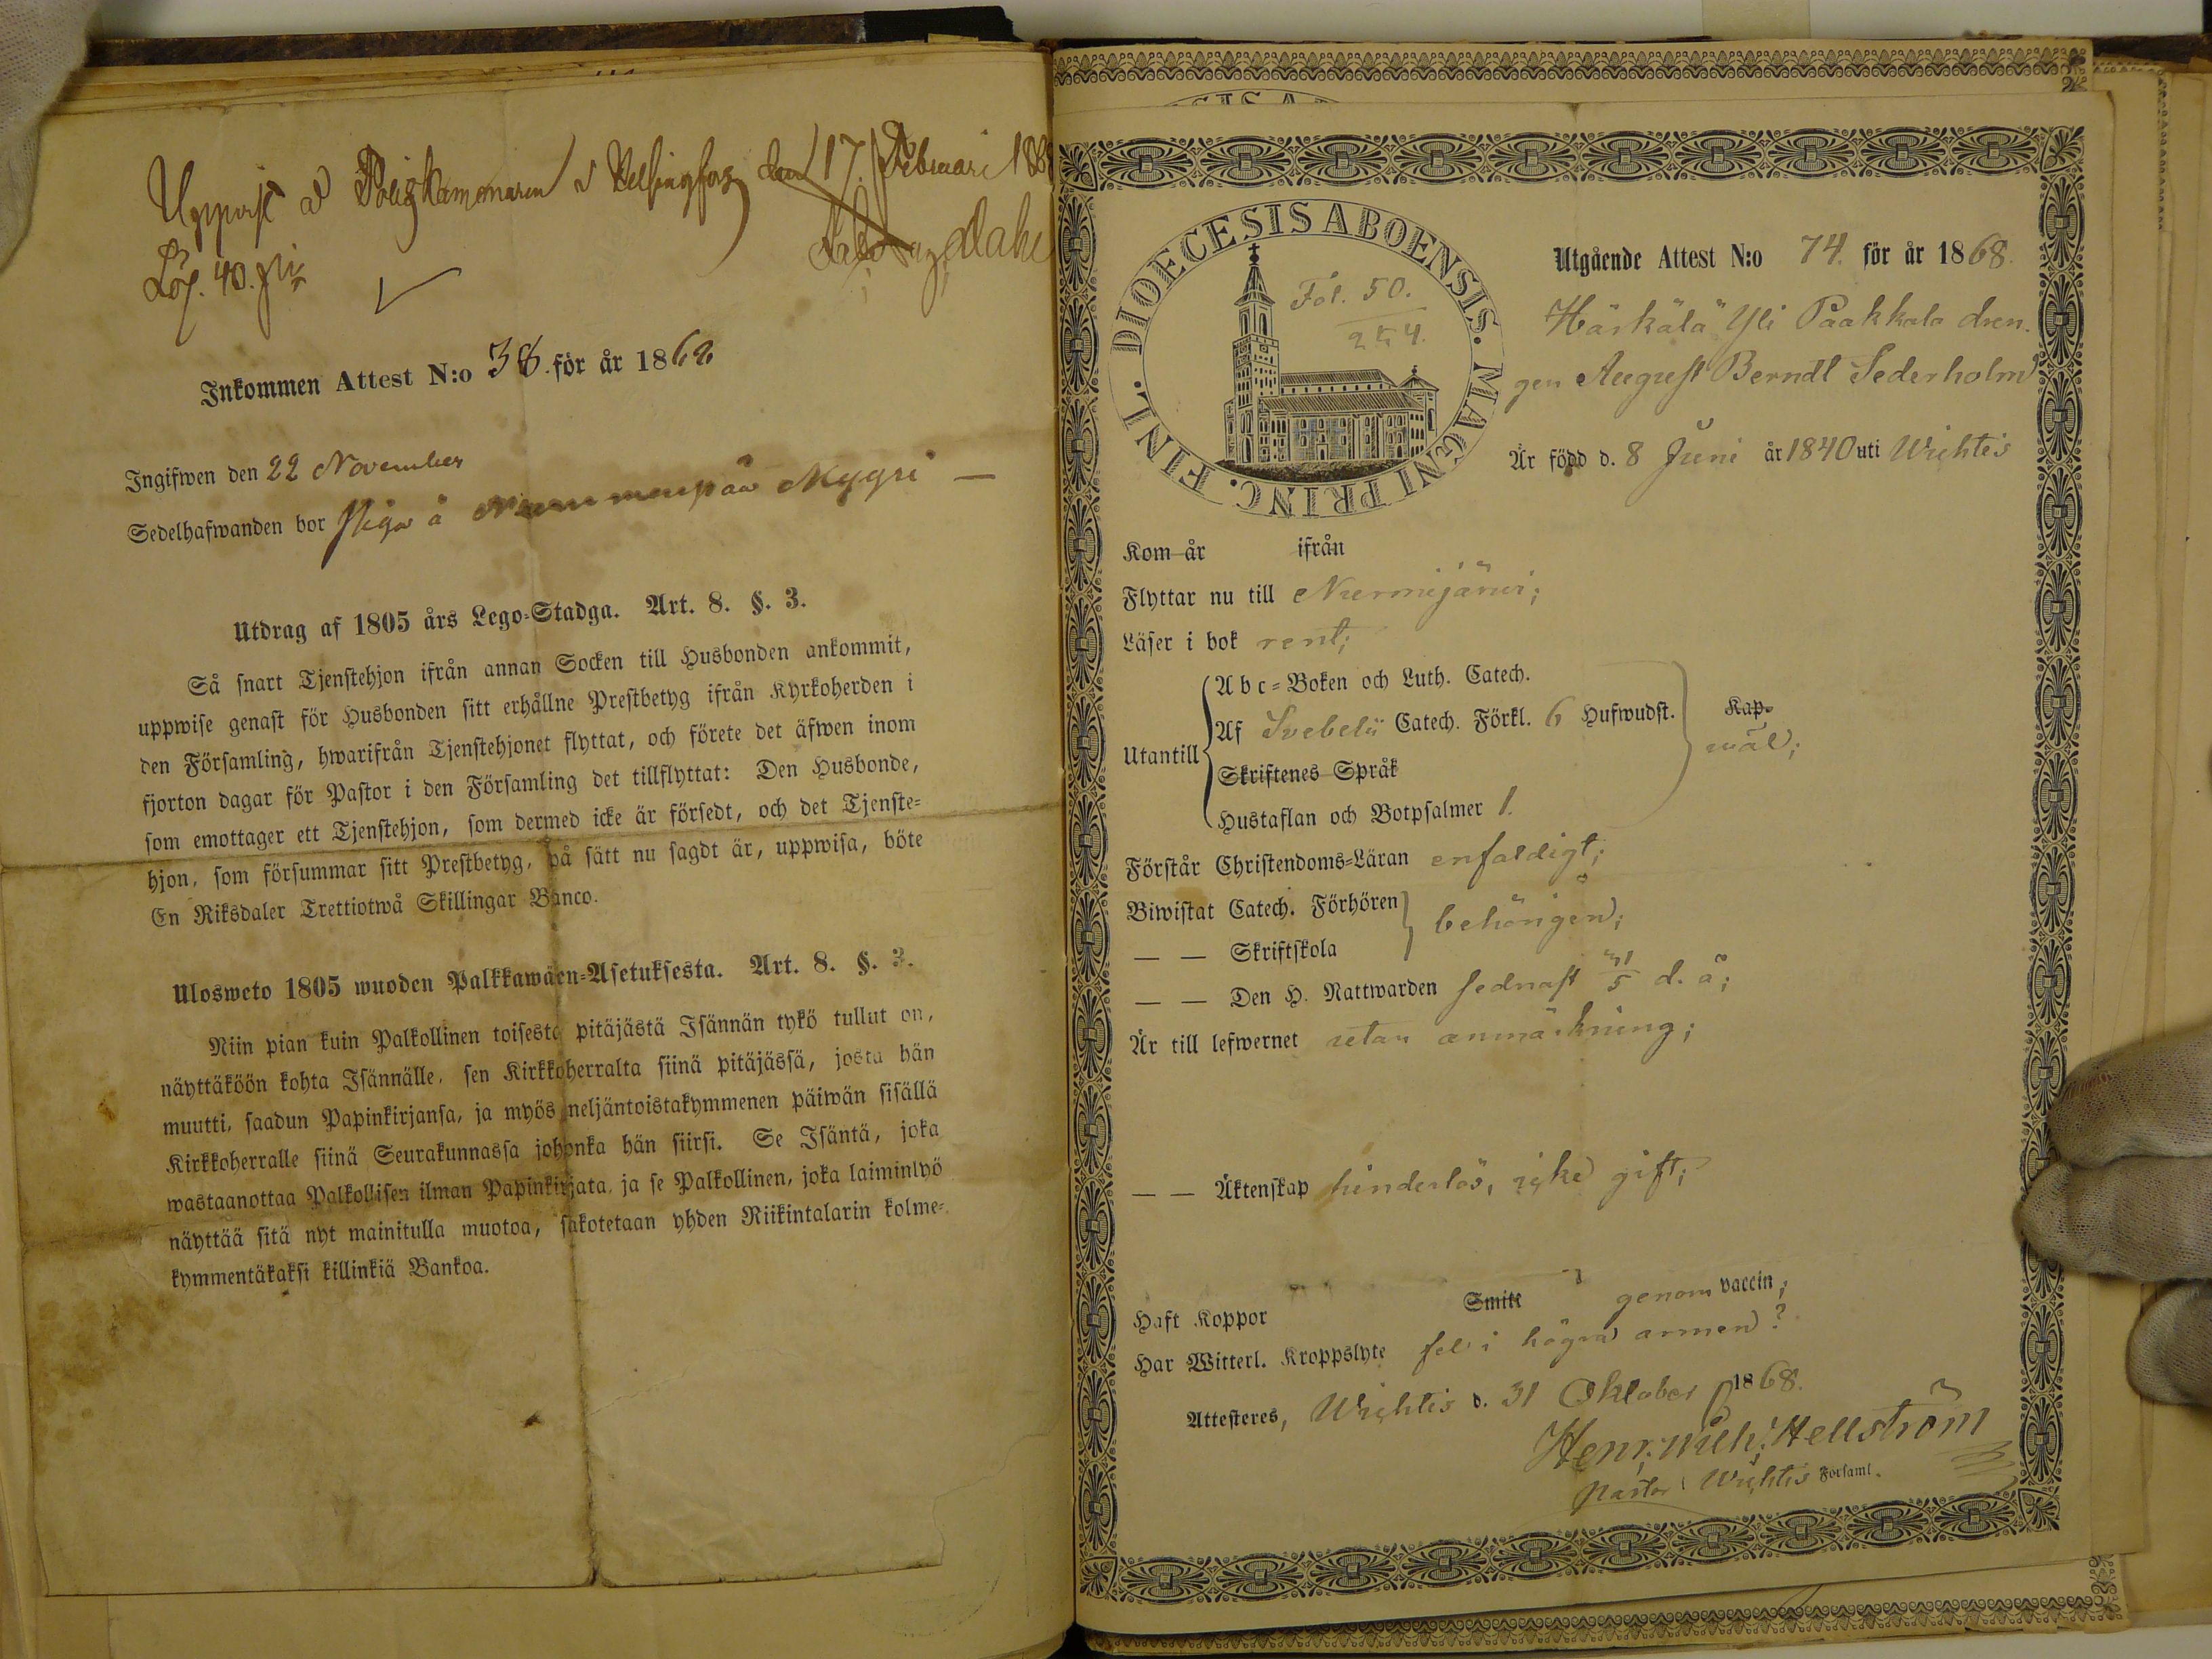 Uppvist å Poliskammaren i Helsingfors den 17. Februari 186
Lös. 40. pi
Inkommen Attest N:o 38. för år 1868
Ingifwen den 22 November
Sedelhafwanden bor Piga å Nummenpää Myyri —
Utdrag af 1805 års Lego-Stadga. Art. 8. §. 3.
Så snart Tjenstehjon ifrån annan Socken till Husbonden ankommit,
uppwise genast för Husbonden sitt erhållne Prestbetyg ifrån Kyrkoherden i
den Församling, hwarifrån Tjenstehjonet flyttat, och förete det äfwen inom
fjorton dagar för Pastor i den Församling det tillflyttat: Den Husbonde,
som emottager ett Tjenstehjon, som dermed icke är försedt, och det Tjenste-
hjon, som försummar sitt Prestbetyg, på sätt nu sagdt är, uppwisa, böte
En Riksdaler Trettiotwå Skillingar Banco.
Ulosweto 1805 wuoden Palkkawäen-Asetuksesta. Art. 8. §. 3.
Niin pian kuin Palkollinen toisesta pitäjästä Isännän tykö tullut on,
näyttäköön kohta Isännälle, sen Kirkkoherralta siinä pitäjässä, josta hän
muutti, saadun Papinkirjansa, ja myös neljäntoistakymmenen päiwän sisällä
Kirkkoherralle siinä Seurakunnassa johonka hän siirsi. Se Isäntä, joka
wastaanottaa Palkollisen ilman Papinkirjata, ja se Palkollinen, joka laiminlyö
näyttää sitä nyt mainitulla muotoa, sakotetaan yhden Riikintalarin kolme-
kymmentäkaksi killinkiä Bankoa.
DIOECESIS ABOENSIS. MAGNI PRINC. FINL.
Fol. 50.
254.
Utgående Attest N:o 74. för år 1868.
Härkälä Yli Paakkala dren-
gen August Berndt Sederholm
Är född d. 8 Juni år 1840 uti Wichtis
Kom år ifrån
Flyttar nu till Nurmijärvi;
Läser i bok rent;
Utantill
Abc-Boken och Luth. Catech.
Af Svebelii Catech. Förkl. 6 Hufwudst.
Skriftenes Språk
Hustaflan och Botpsalmer 1.
Kap-
wäl;
Förstår Christendoms-Läran enfaldigt;
Biwistat Catech. Förhören
— — Skriftskola
behörigen;
— — Den H. Nattwarden sednast 31/5 d. å;
Är till lefwernet utan anmärkning;
— — Äktenskap hinderlös, icke gift;
Haft Koppor Smitt genom vaccin;
Har Witterl. Kroppslyte fel i högra armen?
Attesteres, Wichtis d. 31 Oktober 1868.
Henr. Wilh. Hellström
Pastor i Wichtis Församl.